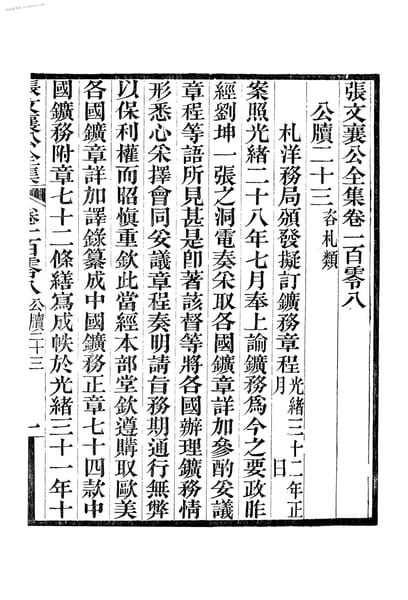 張文襄公全集卷一百零八
公牘二十三 咨札類
札洋務局頒發擬訂鑛務章程 光緒三十二年正月 日
案照光緒二十八年七月奉上諭鑛務為今之要政昨
經劉坤一張之洞電奏采取各國鑛章詳加參酌妥議
章程等語所見甚是卽著該督等將各國辦理鑛務情
形悉心采擇會同妥議章程奏明請旨務期通行無弊
以保利權而昭慎重欽此當經本部堂欽遵購取歐美
各國鑛章詳加譯錄纂成中國鑛務正章七十四款中
國鑛務附章七十二條繕寫成帙於光緒三十一年十
張文襄公全集 卷一百零八 公牘二十三 一